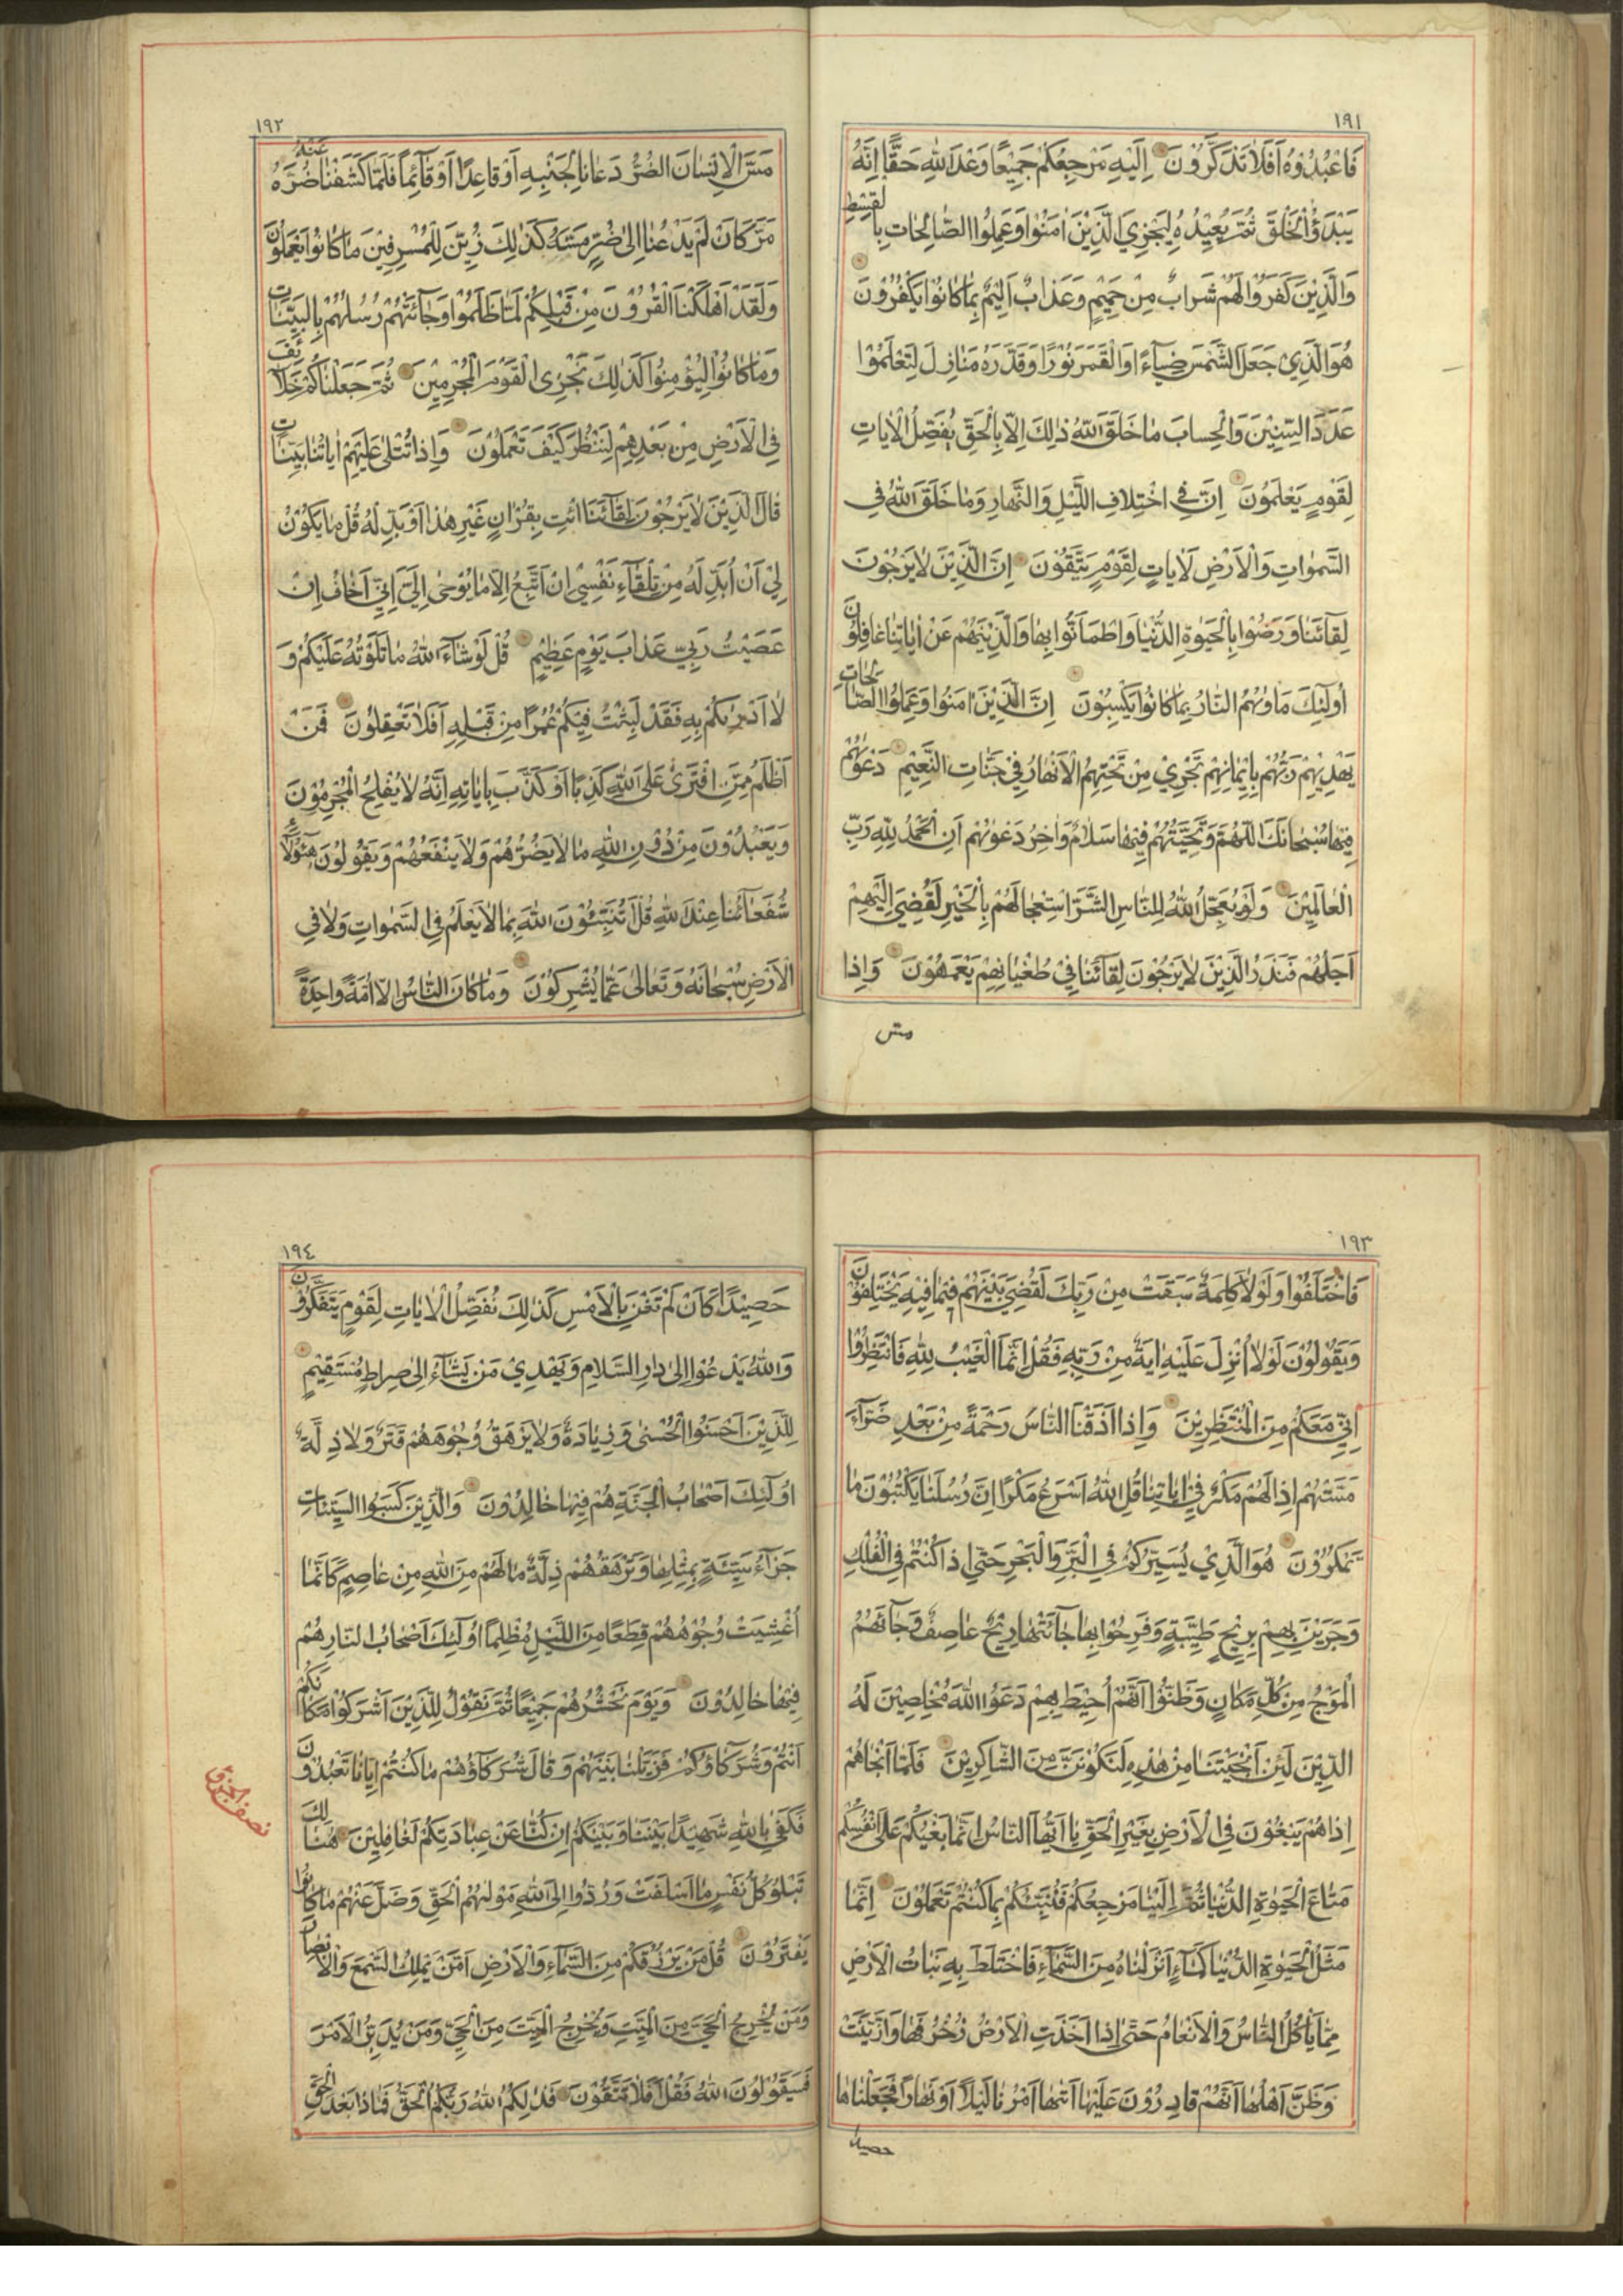 ١٩١
فَاعْبُدُوهُ اَفَلَا تَذَكَّرُونَ اِلَيْهِ مَرْجِعُكُمْ جَمِيْعًا وَعْدَ اللهِ حَقًّا اِنَّهُ
يَبْدَؤُا الْخَلْقَ ثُمَّ يُعِيْدُهُ لِيَجْزِيَ الَّذِيْنَ اٰمَنُوا وَعَمِلُوا الصَّالِحَاتِ بِالْقِسْطِ
وَالَّذِيْنَ كَفَرُوْا لَهُمْ شَرَابٌ مِنْ حَمِيْمٍ وَعَذَابٌ اَلِيْمٌ بِمَا كَانُوا يَكْفُرُوْنَ
هُوَ الَّذِيْ جَعَلَ الشَّمْسَ ضِيَآءً وَالْقَمَرَ نُوْرًا وَقَدَّرَهُ مَنَازِلَ لِتَعْلَمُوْا
عَدَدَ السِّنِيْنَ وَالْحِسَابَ مَا خَلَقَ اللهُ ذٰلِكَ اِلَّا بِالْحَقِّ يُفَصِّلُ الْاٰيَاتِ
لِقَوْمٍ يَعْلَمُوْنَ اِنَّ فِي اخْتِلَافِ اللَّيْلِ وَالنَّهَارِ وَمَا خَلَقَ اللهُ فِي
السَّمٰوَاتِ وَالْاَرْضِ لَاٰيَاتٍ لِقَوْمٍ يَتَّقُوْنَ اِنَّ الَّذِيْنَ لَا يَرْجُوْنَ
لِقَآئَنَا وَرَضُوْا بِالْحَيٰوةِ الدُّنْيَا وَاطْمَاَنُّوا بِهَا وَالَّذِيْنَ هُمْ عَنْ اٰيَاتِنَا غَافِلُوْنَ
اُولٰئِكَ مَاْوٰيهُمُ النَّارُ بِمَا كَانُوْا يَكْسِبُوْنَ اِنَّ الَّذِيْنَ اٰمَنُوا وَعَمِلُوا الصَّالِحَاتِ
يَهْدِيْهِمْ رَبُّهُمْ بِاِيْمَانِهِمْ تَجْرِيْ مِنْ تَحْتِهِمُ الْاَنْهَارُ فِيْ جَنَّاتِ النَّعِيْمِ دَعْوٰيهُمْ
فِيْهَا سُبْحَانَكَ اللّٰهُمَّ وَتَحِيَّتُهُمْ فِيْهَا سَلَامٌ وَاٰخِرُ دَعْوٰيهُمْ اَنِ الْحَمْدُ لِلّٰهِ رَبِّ
الْعَالَمِيْنَ وَلَوْ يُعَجِّلُ اللهُ لِلنَّاسِ الشَّرَّ اسْتِعْجَالَهُمْ بِالْخَيْرِ لَقُضِيَ اِلَيْهِمْ
اَجَلُهُمْ فَنَذَرُ الَّذِيْنَ لَا يَرْجُوْنَ لِقَآئَنَا فِيْ طُغْيَانِهِمْ يَعْمَهُوْنَ وَاِذَا
مسّ
١٩٢
مَسَّ الْاِنْسَانَ الضُّرُّ دَعَانَا لِجَنْبِهِ اَوْ قَاعِدًا اَوْ قَآئِمًا فَلَمَّا كَشَفْنَا عَنْهُ ضُرَّهُ
مَرَّ كَاَنْ لَمْ يَدْعُنَا اِلٰى ضُرٍّ مَسَّهُ كَذٰلِكَ زُيِّنَ لِلْمُسْرِفِيْنَ مَا كَانُوا يَعْمَلُوْنَ
وَلَقَدْ اَهْلَكْنَا الْقُرُوْنَ مِنْ قَبْلِكُمْ لَمَّا ظَلَمُوْا وَجَآئَتْهُمْ رُسُلُهُمْ بِالْبَيِّنَاتِ
وَمَا كَانُوْا لِيُؤْمِنُوا كَذٰلِكَ نَجْزِى الْقَوْمَ الْمُجْرِمِيْنَ ثُمَّ جَعَلْنَاكُمْ خَلَآئِفَ
فِي الْاَرْضِ مِنْ بَعْدِهِمْ لِنَنْظُرَ كَيْفَ تَعْمَلُوْنَ وَاِذَا تُتْلٰى عَلَيْهِمْ اٰيَاتُنَا بَيِّنَاتٍ
قَالَ الَّذِيْنَ لَا يَرْجُوْنَ لِقَآئَنَا ائْتِ بِقُرْاٰنٍ غَيْرِ هٰذَا اَوْ بَدِّلْهُ قُلْ مَا يَكُوْنُ
لِيْ اَنْ اُبَدِّلَهُ مِنْ تِلْقَآءِ نَفْسِيْ اِنْ اَتَّبِعُ اِلَّا مَا يُوْحٰى اِلَيَّ اِنِّيْ اَخَافُ اِنْ
عَصَيْتُ رَبِّيْ عَذَابَ يَوْمٍ عَظِيْمٍ قُلْ لَوْ شَآءَ اللهُ مَا تَلَوْتُهُ عَلَيْكُمْ وَ
لَا اَدْرٰيكُمْ بِهِ فَقَدْ لَبِثْتُ فِيْكُمْ عُمُرًا مِنْ قَبْلِهِ اَفَلَا تَعْقِلُوْنَ فَمَنْ
اَظْلَمُ مِمَّنِ افْتَرٰى عَلَى اللهِ كَذِبًا اَوْ كَذَّبَ بِاٰيَاتِهِ اِنَّهُ لَا يُفْلِحُ الْمُجْرِمُوْنَ
وَيَعْبُدُوْنَ مِنْ دُوْنِ اللهِ مَا لَا يَضُرُّهُمْ وَلَا يَنْفَعُهُمْ وَيَقُوْلُوْنَ هٰٓؤُلَآءِ
شُفَعَآئُنَا عِنْدَ اللهِ قُلْ اَتُنَبِّئُوْنَ اللهَ بِمَا لَا يَعْلَمُ فِي السَّمٰوَاتِ وَلَا فِي
الْاَرْضِ سُبْحَانَهُ وَتَعَالٰى عَمَّا يُشْرِكُوْنَ وَمَا كَانَ النَّاسُ اِلَّا اُمَّةً وَاحِدَةً
١٩٣
فَاخْتَلَفُوْا وَلَوْلَا كَلِمَةٌ سَبَقَتْ مِنْ رَبِّكَ لَقُضِيَ بَيْنَهُمْ فِيْمَا فِيْهِ يَخْتَلِفُوْنَ
وَيَقُوْلُوْنَ لَوْلَا اُنْزِلَ عَلَيْهِ اٰيَةٌ مِنْ رَبِّهِ فَقُلْ اِنَّمَا الْغَيْبُ لِلّٰهِ فَانْتَظِرُوْا
اِنِّيْ مَعَكُمْ مِنَ الْمُنْتَظِرِيْنَ وَاِذَا اَذَقْنَا النَّاسَ رَحْمَةً مِنْ بَعْدِ ضَرَّآءَ
مَسَّتْهُمْ اِذَا لَهُمْ مَكْرٌ فِيْ اٰيَاتِنَا قُلِ اللهُ اَسْرَعُ مَكْرًا اِنَّ رُسُلَنَا يَكْتُبُوْنَ مَا
تَمْكُرُوْنَ هُوَ الَّذِيْ يُسَيِّرُكُمْ فِي الْبَرِّ وَالْبَحْرِ حَتّٰى اِذَا كُنْتُمْ فِي الْفُلْكِ
وَجَرَيْنَ بِهِمْ بِرِيْحٍ طَيِّبَةٍ وَفَرِحُوْا بِهَا جَآئَتْهَا رِيْحٌ عَاصِفٌ وَجَآئَهُمُ
الْمَوْجُ مِنْ كُلِّ مَكَانٍ وَظَنُّوْا اَنَّهُمْ اُحِيْطَ بِهِمْ دَعَوُا اللهَ مُخْلِصِيْنَ لَهُ
الدِّيْنَ لَئِنْ اَنْجَيْتَنَا مِنْ هٰذِهِ لَنَكُوْنَنَّ مِنَ الشَّاكِرِيْنَ فَلَمَّا اَنْجَاهُمْ
اِذَا هُمْ يَبْغُوْنَ فِي الْاَرْضِ بِغَيْرِ الْحَقِّ يَا اَيُّهَا النَّاسُ اِنَّمَا بَغْيُكُمْ عَلٰى اَنْفُسِكُمْ
مَتَاعَ الْحَيٰوةِ الدُّنْيَا ثُمَّ اِلَيْنَا مَرْجِعُكُمْ فَنُنَبِّئُكُمْ بِمَا كُنْتُمْ تَعْمَلُوْنَ اِنَّمَا
مَثَلُ الْحَيٰوةِ الدُّنْيَا كَمَآءٍ اَنْزَلْنَاهُ مِنَ السَّمَآءِ فَاخْتَلَطَ بِهِ نَبَاتُ الْاَرْضِ
مِمَّا يَاْكُلُ النَّاسُ وَالْاَنْعَامُ حَتّٰى اِذَا اَخَذَتِ الْاَرْضُ زُخْرُفَهَا وَازَّيَّنَتْ
وَظَنَّ اَهْلُهَا اَنَّهُمْ قَادِرُوْنَ عَلَيْهَا اَتٰيهَا اَمْرُنَا لَيْلًا اَوْ نَهَارًا فَجَعَلْنَاهَا
حصيدا
١٩٤
حَصِيْدًا كَاَنْ لَمْ تَغْنَ بِالْاَمْسِ كَذٰلِكَ نُفَصِّلُ الْاٰيَاتِ لِقَوْمٍ يَتَفَكَّرُوْنَ
وَاللهُ يَدْعُوْا اِلٰى دَارِ السَّلَامِ وَيَهْدِيْ مَنْ يَشَآءُ اِلٰى صِرَاطٍ مُسْتَقِيْمٍ
لِلَّذِيْنَ اَحْسَنُوا الْحُسْنٰى وَزِيَادَةٌ وَلَا يَرْهَقُ وُجُوْهَهُمْ قَتَرٌ وَلَا ذِلَّةٌ
اُولٰئِكَ اَصْحَابُ الْجَنَّةِ هُمْ فِيْهَا خَالِدُوْنَ وَالَّذِيْنَ كَسَبُوا السَّيِّئَاتِ
جَزَآءُ سَيِّئَةٍ بِمِثْلِهَا وَتَرْهَقُهُمْ ذِلَّةٌ مَا لَهُمْ مِنَ اللهِ مِنْ عَاصِمٍ كَاَنَّمَا
اُغْشِيَتْ وُجُوْهُهُمْ قِطَعًا مِنَ اللَّيْلِ مُظْلِمًا اُولٰئِكَ اَصْحَابُ النَّارِ هُمْ
فِيْهَا خَالِدُوْنَ وَيَوْمَ نَحْشُرُهُمْ جَمِيْعًا ثُمَّ نَقُوْلُ لِلَّذِيْنَ اَشْرَكُوْا مَكَانَكُمْ
اَنْتُمْ وَشُرَكَاؤُكُمْ فَزَيَّلْنَا بَيْنَهُمْ وَقَالَ شُرَكَآؤُهُمْ مَا كُنْتُمْ اِيَّانَا تَعْبُدُوْنَ
فَكَفٰى بِاللهِ شَهِيْدًا بَيْنَنَا وَبَيْنَكُمْ اِنْ كُنَّا عَنْ عِبَادَتِكُمْ لَغَافِلِيْنَ هُنَالِكَ
تَبْلُوْ كُلُّ نَفْسٍ مَا اَسْلَفَتْ وَرُدُّوْا اِلَى اللهِ مَوْلٰيهُمُ الْحَقِّ وَضَلَّ عَنْهُمْ مَا كَانُوْا
يَفْتَرُوْنَ قُلْ مَنْ يَرْزُقُكُمْ مِنَ السَّمَآءِ وَالْاَرْضِ اَمَّنْ يَمْلِكُ السَّمْعَ وَالْاَبْصَارَ
وَمَنْ يُخْرِجُ الْحَيَّ مِنَ الْمَيِّتِ وَيُخْرِجُ الْمَيِّتَ مِنَ الْحَيِّ وَمَنْ يُدَبِّرُ الْاَمْرَ
فَسَيَقُوْلُوْنَ اللهُ فَقُلْ اَفَلَا تَتَّقُوْنَ فَذٰلِكُمُ اللهُ رَبُّكُمُ الْحَقُّ فَمَاذَا بَعْدَ الْحَقِّ
نصف الحزب